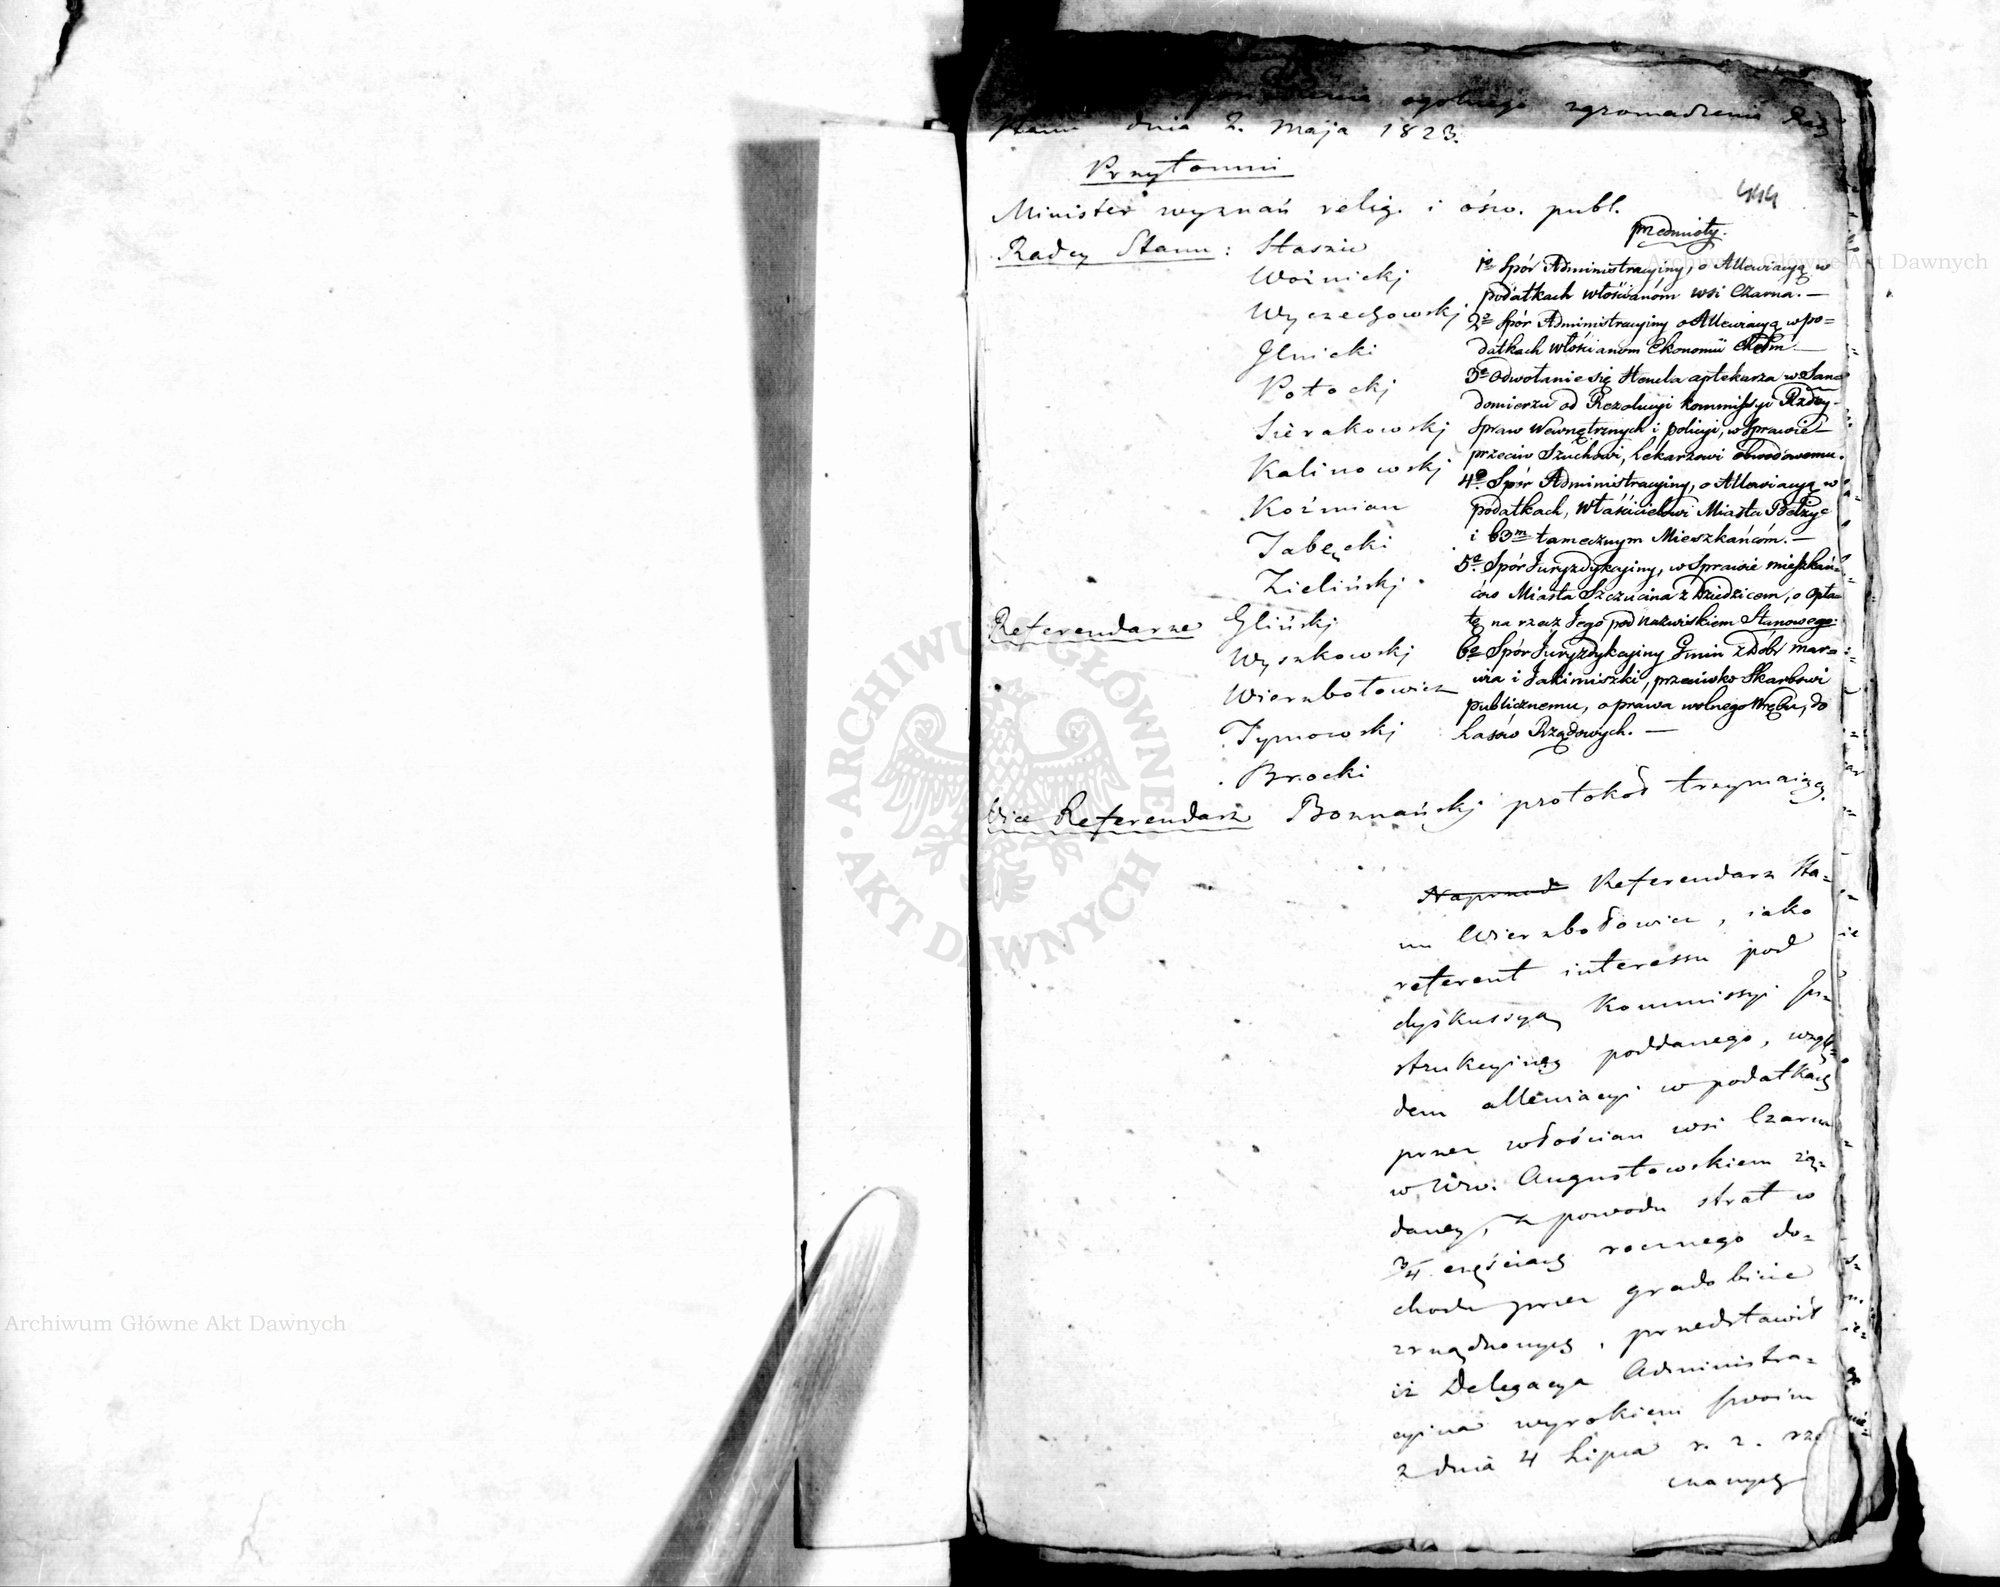 posiedzenia ogólnego zgromadzenia Rady
Stanu dnia 2. Maja 1823.
Przytomni
Minister wyznań relig. i ośw. publ.
444
Radcy Stanu: Staszic
Woźnicki
Wyczechowski
Glnicki
Potocki
Sierakowski
Kalinowski
Koźmian
Tabęcki
Zieliński
Referendarze Gliński
Wyszkowski
Wierzbołowicz
Tymowski
Brocki
Vice Referendarz Boznański protokół trzymaiący.
przedmioty.
1e Spór Administracyiny, o Allewiacyą w
podatkach włościanóm wsi Czarna. —
2e Spór Administracyiny o Allewiacyą w po=
datkach włościanom Ekonomii Chełm —
3e Odwołanie się Hencla aptekarza w San=
domierzu od Rezolucyi Kommissyi Rządey
Spraw Wewnętrznych i policyi, w Sprawie
przeciw Szuchowi, Lekarzowi obwodowemu.
4e Spór Administracyiny, o Allewiacyą w
podatkach, Właścicielowi Miasta Bełzyc
i 63m tamecznym Mieszkańcóm. —
5e Spór Juryzdykcyiny, w Sprawie mieszkań=
ców Miasta Szczucina z Dziedzicem, o opła=
tę na rzecz Jego pod nazwiskiem Stanowego.
6e Spór Juryzdykcyiny Gmin z Dóbr mara
wia i Jakimiszki, przeciwko Skarbowi
publicznemu, o prawa wolnego Wrębu, do
Lasów Rządowych. —
Naprzod Referendarz Sta=
nu Wierzbołowicz, iako
referent interessu pod
dyskussyą Kommissyi In=
strukcyiney poddanego, wzglę=
dem allewiacyi w podatkach
przez włościan wsi Czarna
w Ww. Augustowskiem żą=
daney, z powodu strat w
3/4 częściach rocznego do=
chodu przez gradobicie
zrządzonych, przedstawił
iż Delegacya Administra=
cyina wyrokiem swoim
z dnia 4 Lipca r. z. rze
czonych
Archiwum Główne Akt Dawnych
Archiwum Główne Akt Dawnych
ARCHIWUM GŁÓWNE AKT DAWNYCH